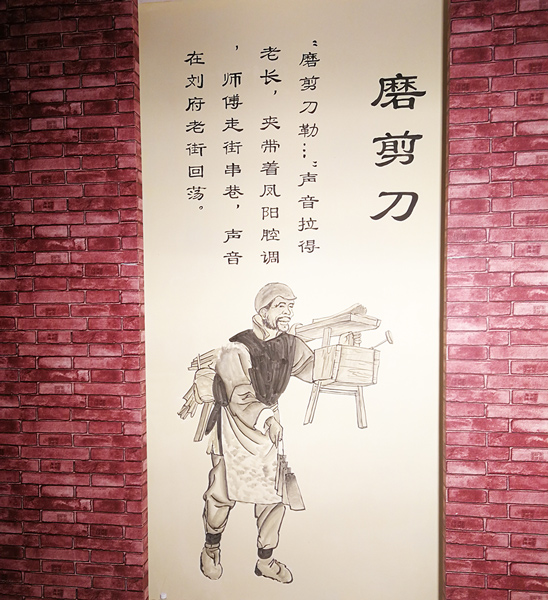 磨剪刀
“磨剪刀勒…”声音拉得
老长，夹带着凤阳腔调
，师傅走街串巷，声音
在刘府老街回荡。